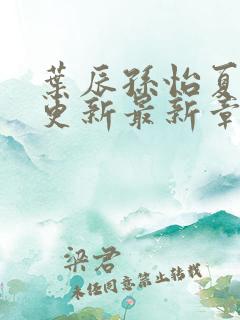 葉辰孫怡夏
更新最新章
梁君
未任同意禁止转载